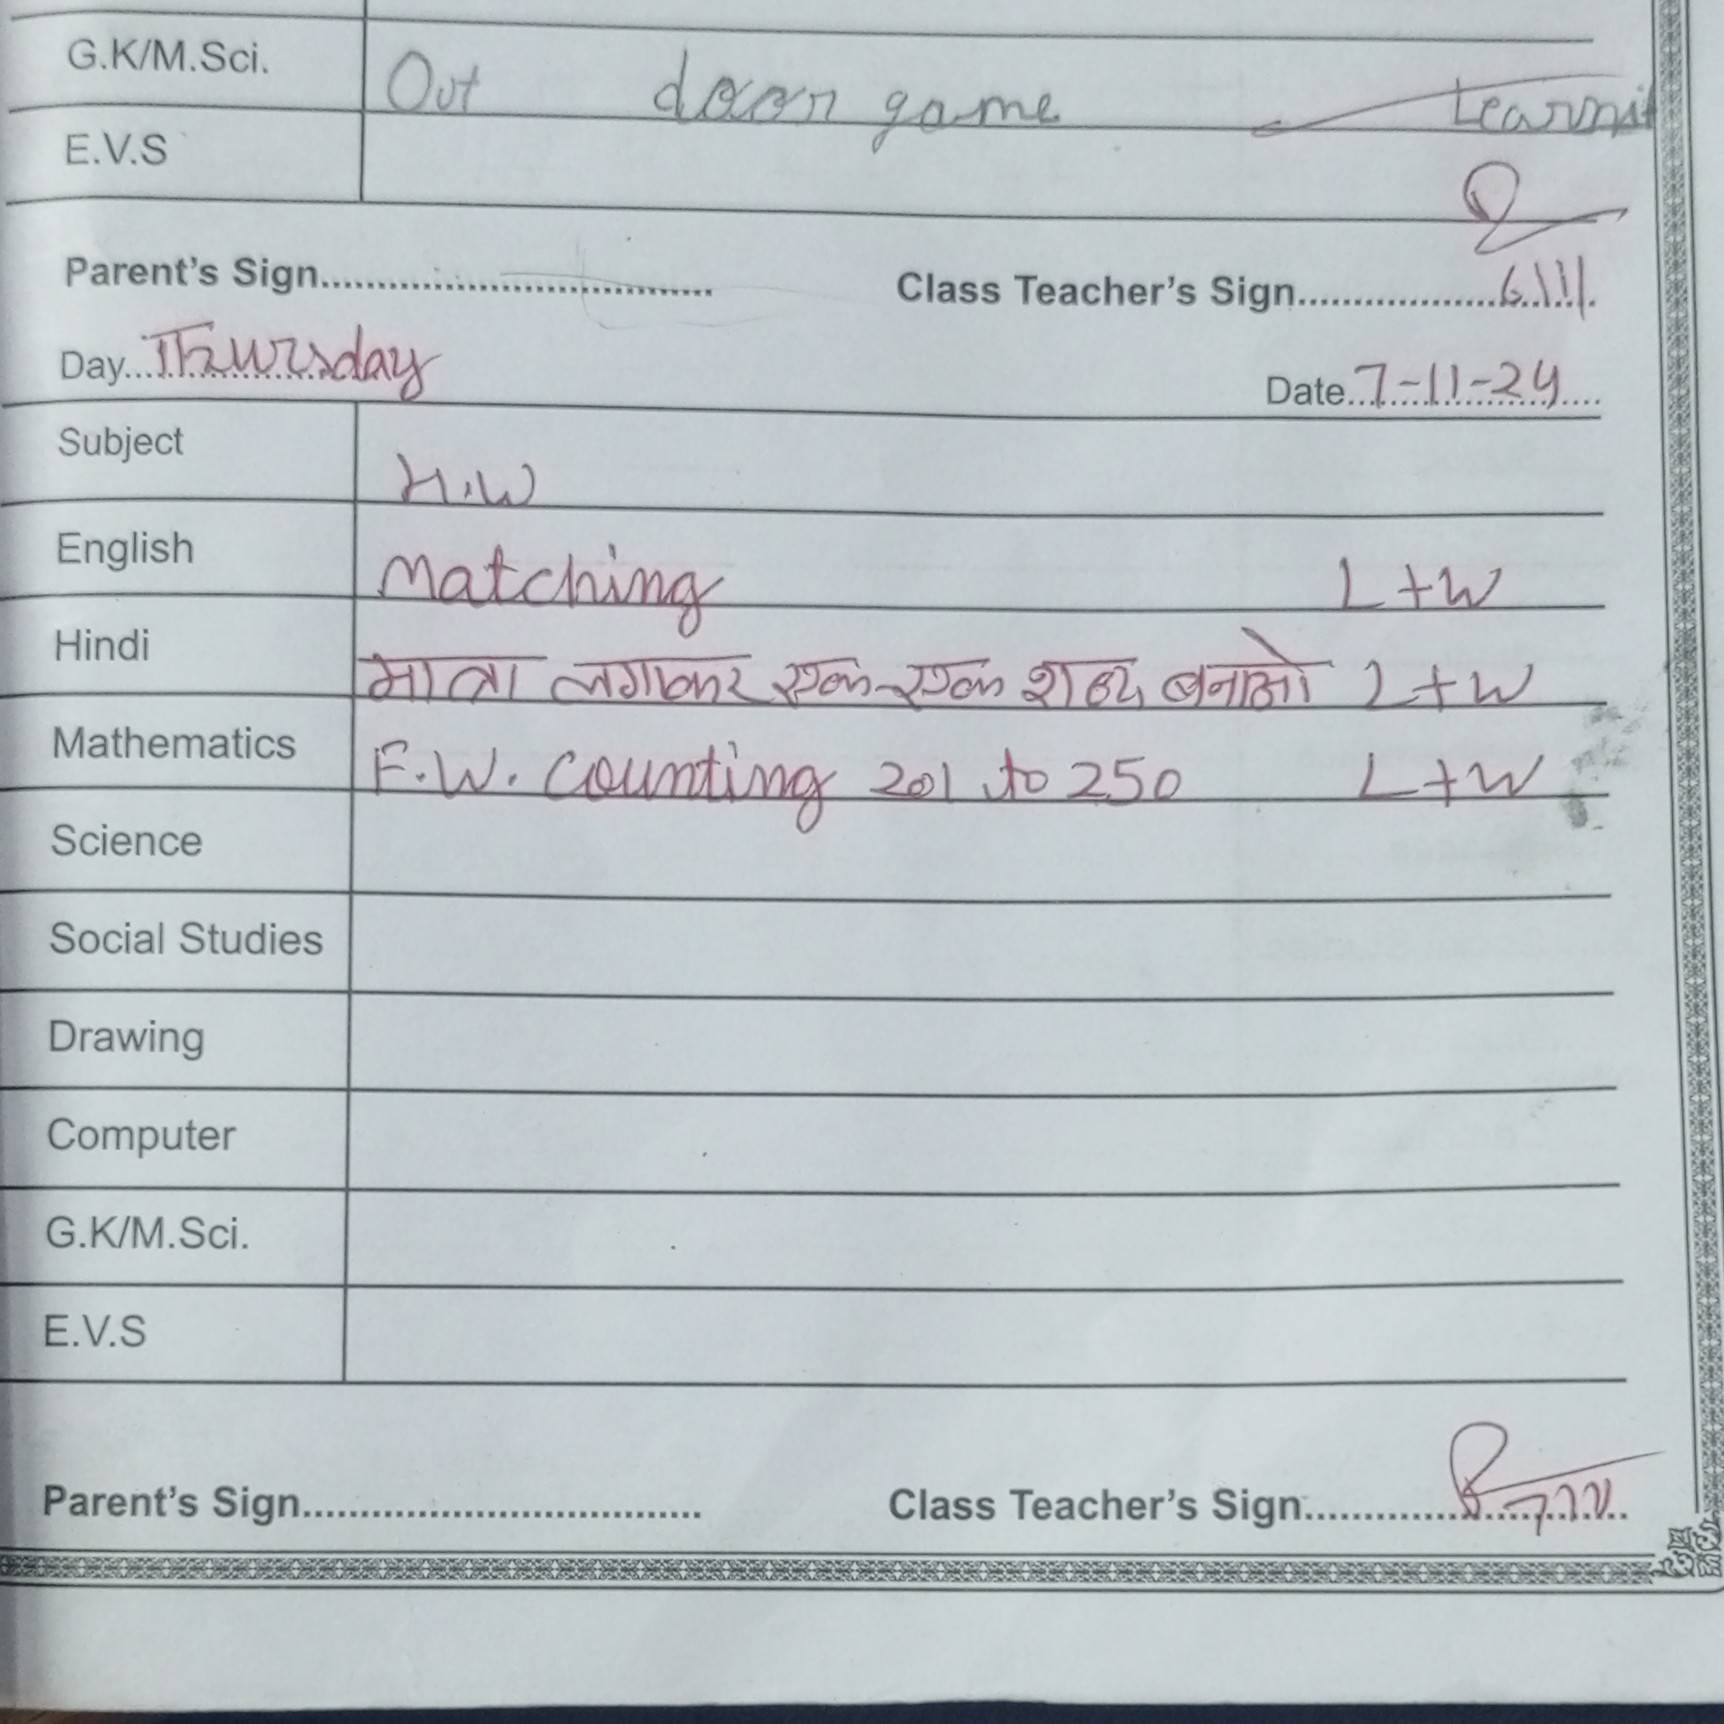 G.K/M.Sci. Out door game Learnit
E.V.S
Parent's Sign.................................... Class Teacher's Sign................... 6.11.
Day...Thursday Date..7-11-24....
Subject H.W
English Matching L+W
Hindi मात्रा लगाकर एक-एक शब्द बनाओ L+W
Mathematics F.W. counting 201 to 250 L+W
Science
Social Studies
Drawing
Computer
G.K/M.Sci.
E.V.S
Parent's Sign.................................... Class Teacher's Sign...................